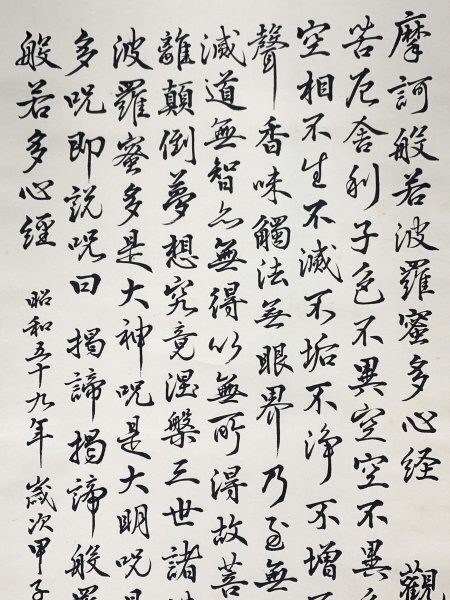 摩訶般若波羅蜜多心経 觀
苦厄舎利子色不異空空不異
空相不生不滅不垢不浄不増
聲香味觸法無眼界乃至無
滅道無智亦無得以無所得故菩
離顛倒夢想究竟涅槃三世諸
波羅蜜多是大神呪是大明呪是
多呪即説呪曰 掲諦掲諦般羅
般若多心經 昭和五十九年 歳次甲子